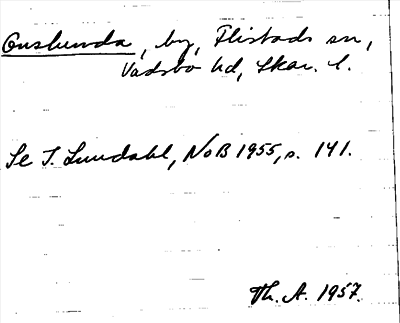 Onsbunda, by, Flistads sn,
Vadsbo hd, Skar. l.
Se I. Lundahl, NoB 1955, s. 141.
Th. A. 1957.